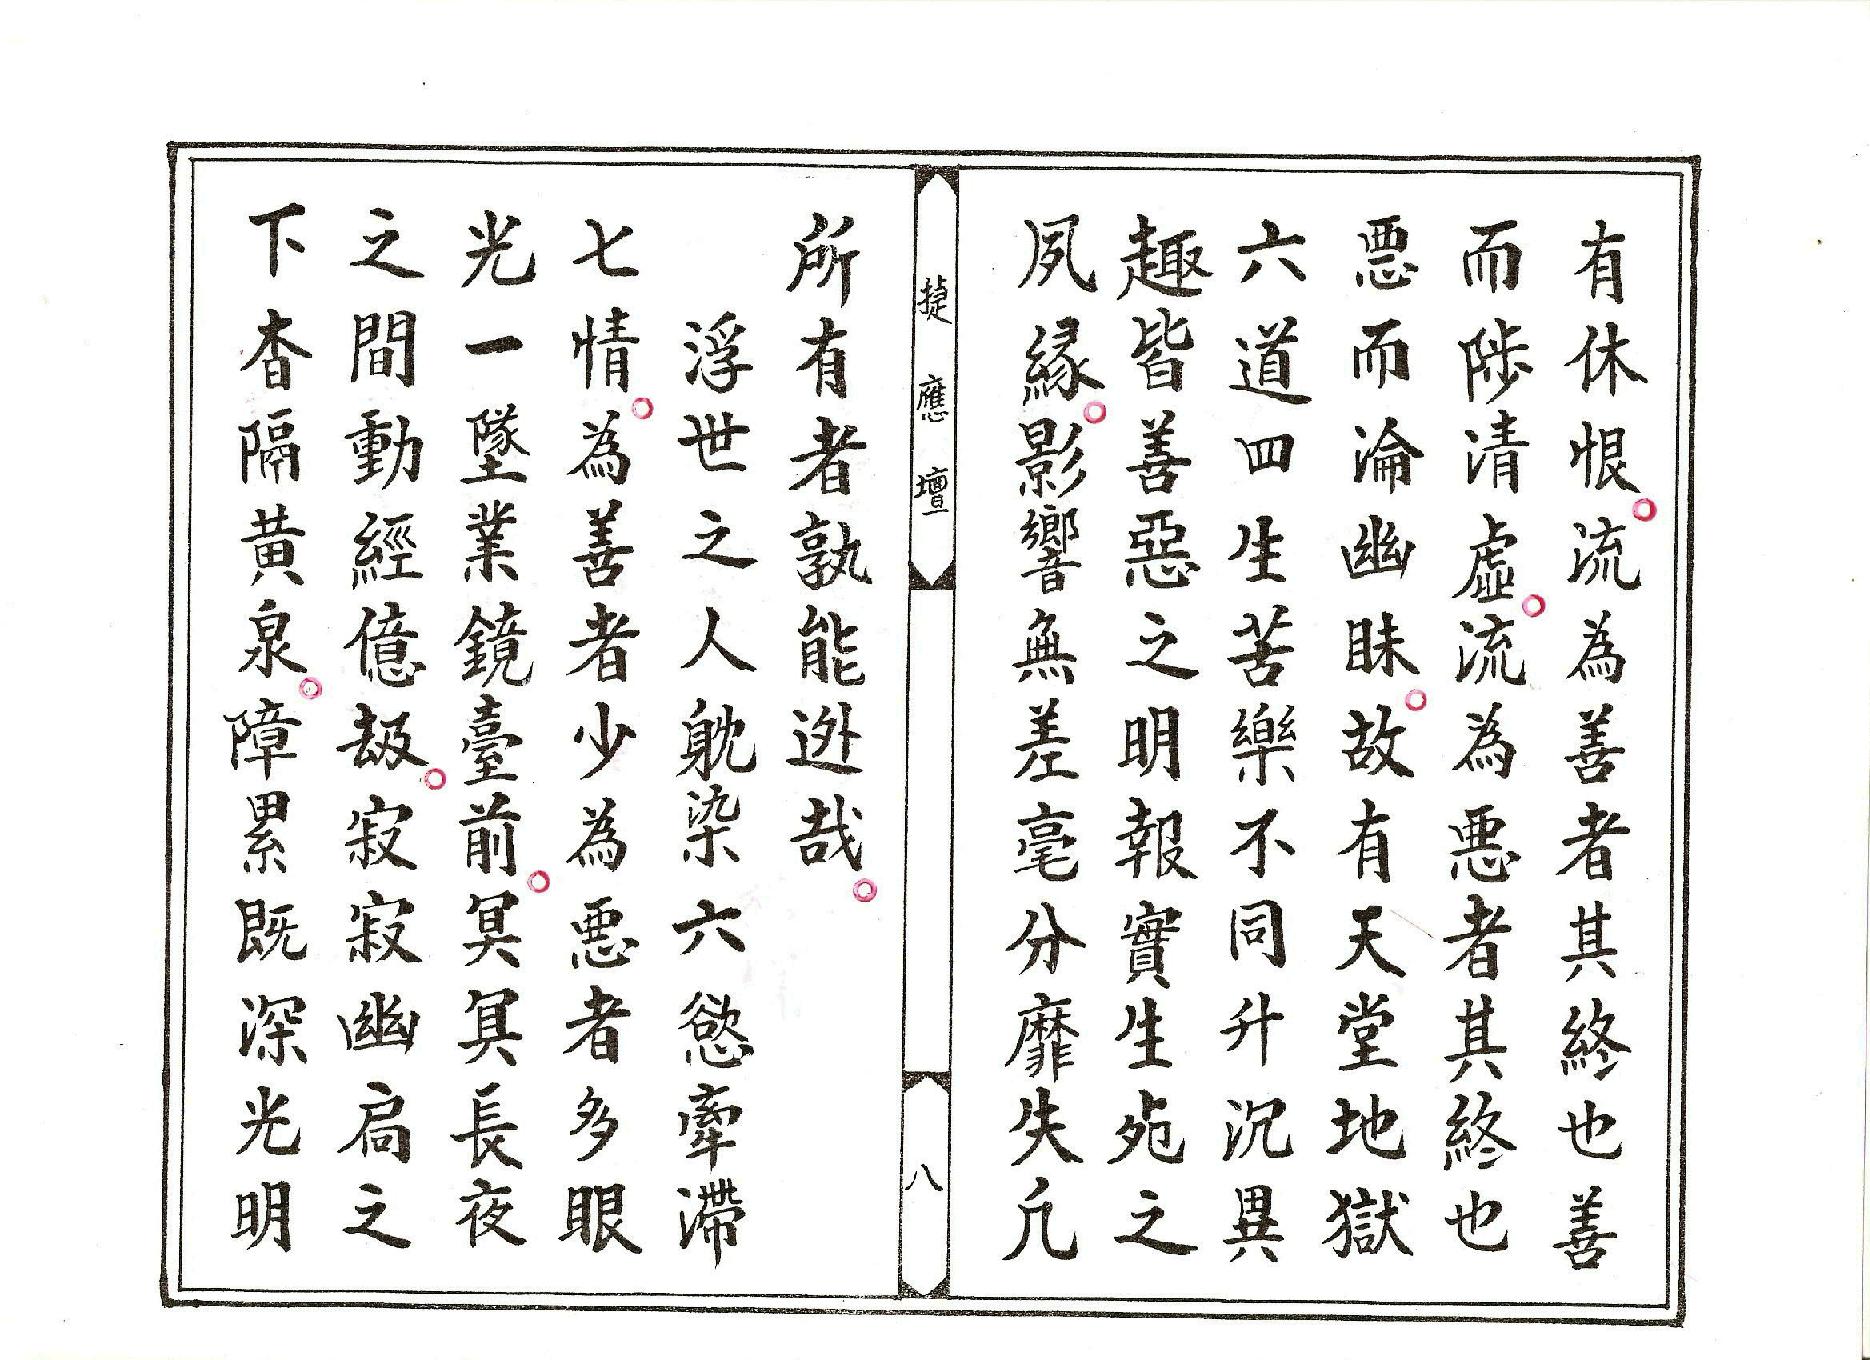 有休恨。流為善者其終也善
而陟清虛。流為悪者其終也
悪而淪幽昧。故有天堂地獄
六道四生苦樂不同升沉異
趣皆善惡之明報實生死之
夙緣。影響無差毫分靡失凢
捷應壇
八
所有者孰能逃哉。
浮世之人躭染六慾牽滯
七情。為善者少為悪者多眼
光一墜業鏡臺前。冥冥長夜
之間動經億劫。寂寂幽扃之
下杳隔黄泉。障累既深光明